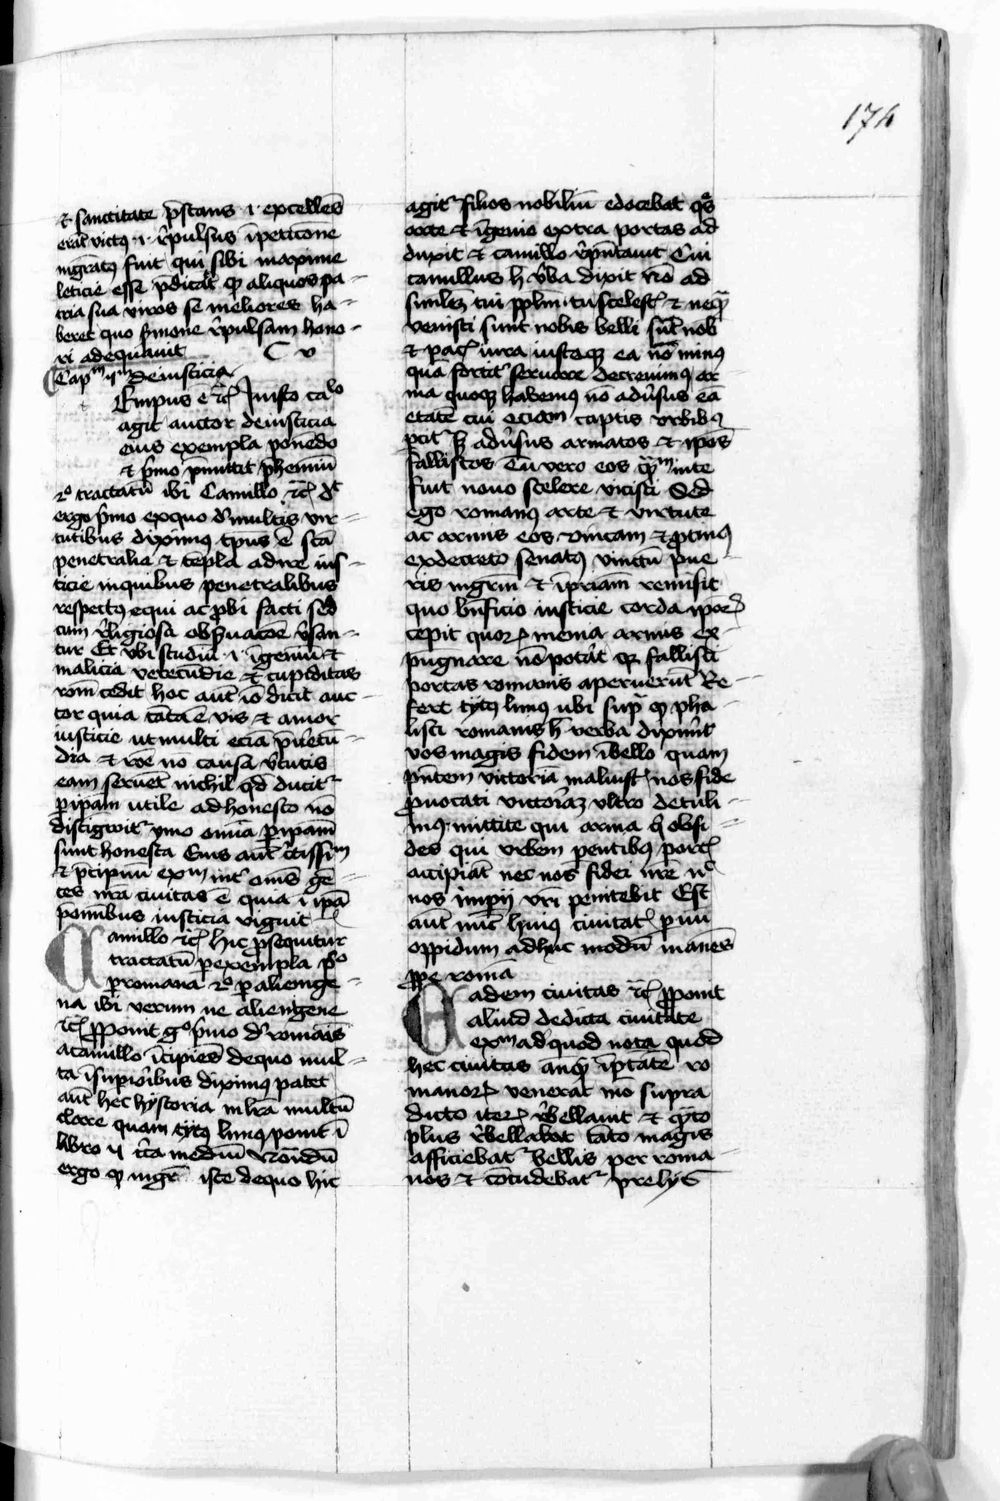 174
et sanctitate p̄stans .i. excellēs
erat victꝰ .i. r̄pulsus ī peticōne
mgr̄atꝰ fuit qui sibi maxime
leticie esse p̄dicat̄ qꝫ aliquos pa-
tria sua viros se meliores ha-
beret quo s̄mone r̄pulsam hono-
ri adequauit C v
Capᵐ ijᵐ de iusticia
Empus ē rc̄ In isto caᵒ
agit auctor de iusticia
eius exempla ponēdo
et p̄mo p̄mittit ꝓhemiū
2º tractatū ibi Camillo rc̄ dt̄
ergo p̄mo ex quo de multis vir-
tutibus diximus tp̄us ē sc̄a
penetralia et tēpla adire ius-
ticie in quibus penetralibus
respectꝰ equi ac ꝓbi facti sed
cum r̄ligiosa obs̄uacōe v̄san-
tur Et vbi studiū .i. īgeniū et
malicia verecundie et cupiditas
rōni cedit hoc aut̄ iō dicit auc-
tor quia tāta ē vis et amor
iusticie ut multi ecia
et rōe nō causa v̄tutis
eam seruēt nichil qd̄ ducit̄
ꝑ ip̄am utile ad honesto nō
distīgwit̄ ymo omīa ꝑ ip̄am
sunt honesta Eius aut̄ c̄tissīm
et p̄cipuū exᵐ int̄ om̄s gē-
tes nr̄a ciuitas ē quia ī ip̄a
p̄ omībus iusticia viguit
Camillo rc̄ hic ꝓsequitur
tractatū ꝑ exempla p̄º
ꝑ romana 2º ꝑ alienige-
na ibi verum ne alienigene
rc̄ ꝓponit gº p̄mo de romāis
a camillo īcipiēs de quo mul-
ta ī sup̄ioribus diximꝰ patet
aut̄ hec hystoria in lr̄a multū
clare quam tytꝰ liuiꝰ ponit ī
libro v
ergo qꝫ mgr̄ iste de quo hic
agit̄ filios nobiliū edocebat qᵒs
arte et īgenio extra portas ad
duxit et camillo r̄p̄ntauit Cui
camillus h̄ v̄ba dixit nō ad
similē tui pp̄lm tu scelestꝰ et neqꝫ
venisti sunt nobis belli
et pacꝭ iura iusteqꝫ ea nō minꝰ
quā fortit̄ seruare decreuimꝰ ar
ma quoqꝫ habemꝰ nō adūsus eā
etatē cui eciam captis vrbibꝰ
ꝑcit̄ sꝫ adūsus armatos et ip̄os
falliscos Tu vero eos qᵃm in te
fuit nouo scelere vicisti Sed
ego romanꝰ arte et virtute
ac armis eos vincam et ꝓtinꝰ
ex decreto senatꝰ vinctū pue-
ris mgr̄m et ī pr̄iam remisit
quo bn̄ficio iusticie corda ip̄oꝝ
cepit quoꝝ menia armis ex-
pugnare nō potuit qꝫ fallisci
portas romanis aperuerūt Re-
fert tytꝰ liuius ubi sup̄ qꝫ pha-
lisci romanis h̄ verba dixerūt
vos magis fidem ī bello quam
p̄ntem victoriā maluistꝭ nos fide
ꝓuocati victoriā vltro detuli-
mꝰ mittite qui arma qⁱ obsi-
des qui vrbem patentibꝰ portꝭ
accipiāt nec nos fidei nr̄e nͨ
nos imꝑij vr̄i penitebit Est
aut̄ nūc huiꝰ ciuitatꝭ ꝑuū
oppidum adhuc modū manēs
ꝓpe roma
Eadem ciuitas rc̄ ꝓponit
aliud de dicta ciuitate
exᵐ ad quod nota quod
hec ciuitas
manoꝝ venerat mō supra
dicto iteꝝ r̄bellauit et qᵃto
plus r̄bellabat tāto magis
afficiebat̄ bellis per roma-
nos et cōtudebat̄ prelijs